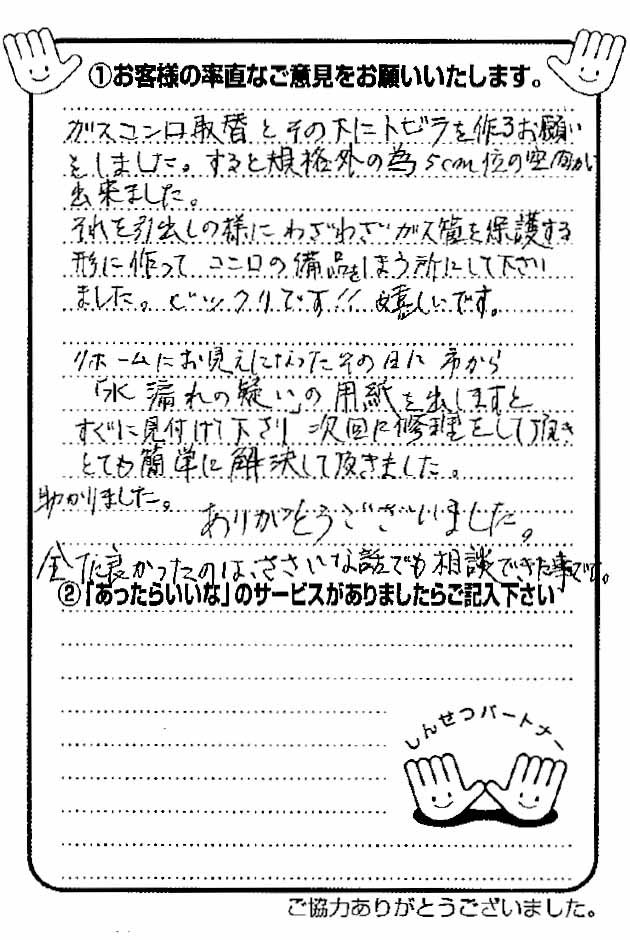 ①お客様の率直なご意見をお願いいたします。
ガスコンロ取替とその下にトビラを作るお願い
をしました。すると規格外の為5cm位の空間が
出来ました。
それを引出しの様にわざわざガス管を保護する
形に作ってコンロの備品をしまう所にして下さい
ました。ビックリです!!嬉しいです。
リホームにお見えになったその日に市から
「水漏れの疑い」の用紙を出しますと
すぐに見付けて下さり次回に修理をして頂き
とても簡単に解決して頂きました。
助かりました。
ありがとうございました。
全てに良かったのは、ささいな話でも相談できた事です。
②「あったらいいな」のサービスがありましたらご記入下さい
しんせつパートナー
ご協力ありがとうございました。